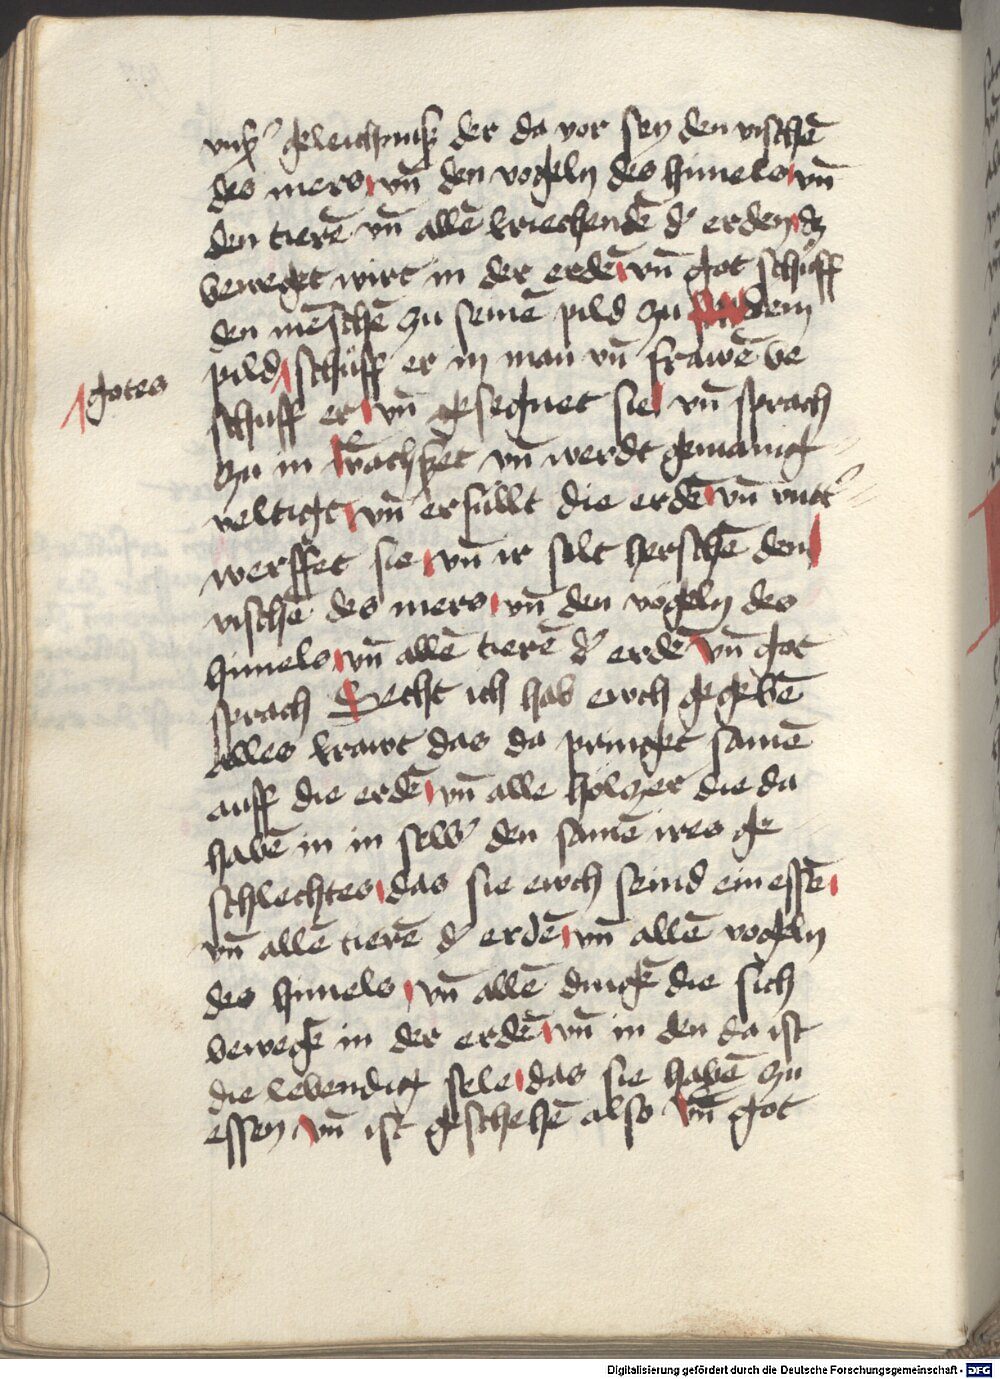 vnß' geleichnuß der da vor sey den vischē
des mers vn̄ den vogeln des himels vn̄
den tierē vn̄ allē kriechendē d' erden dz
beweget wirt in der erdē vn̄ got schůff
den mēschē zu seinē pild zu dem
pild schůff er in man vn̄ frawē be
gotes
schuff er vn̄ gesegnet sie vn̄ sprach
zu in wachßet vn̄ werdt gemanig
veltigt vn̄ erfullt die erdē vn̄ vntt'
werffet sie vn̄ ir sult herschē den
vischē des mers vn̄ den vogeln des
himels vn̄ allē tierē d' erdē vn̄ got
sprach Secht ich hab ewch gegebē
alles krawt das da pringet samē
auff die erdē vn̄ alle hölczer die da
habē in in selb' den samē ires ge
schlechtes das sie ewch seind ein essē
vn̄ allē tierē d' erdē vn̄ allē vogeln
des himels vn̄ allē dingē die sich
bewegē in der erdē vn̄ in den da ist
die lebendig sele das sie habē zu
essen vn̄ ist geschehē also vn̄ got
Digitalisierung gefördert durch die Deutsche Forschungsgemeinschaft - DFG